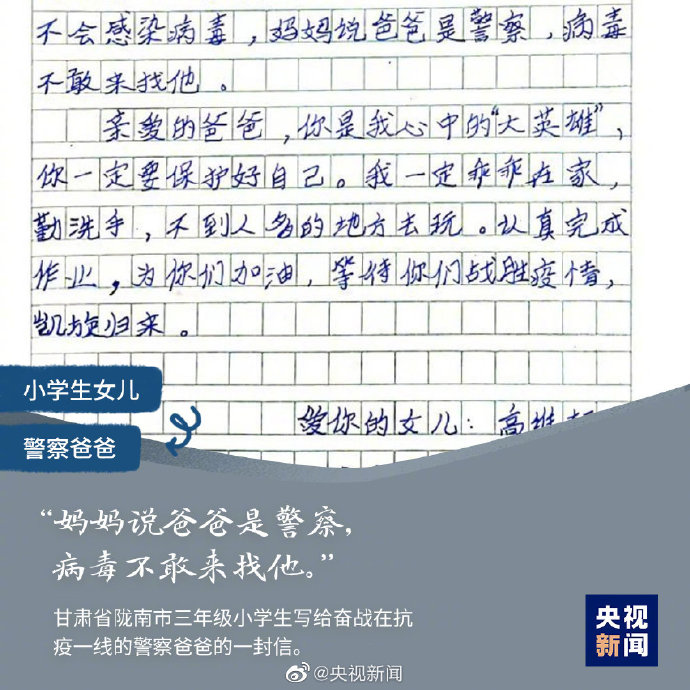 不会感染病毒，妈妈说爸爸是警察，病毒
不敢来找他。
亲爱的爸爸，你是我心中的“大英雄”，
你一定要保护好自己。我一定乖乖在家，
勤洗手，不到人多的地方去玩。认真完成
作业，为你们加油，等待你们战胜疫情，
凯旋归来。
爱你的女儿：高维
小学生女儿
警察爸爸
“妈妈说爸爸是警察，
病毒不敢来找他。”
甘肃省陇南市三年级小学生写给奋战在抗
疫一线的警察爸爸的一封信。
央视
新闻
@央视新闻